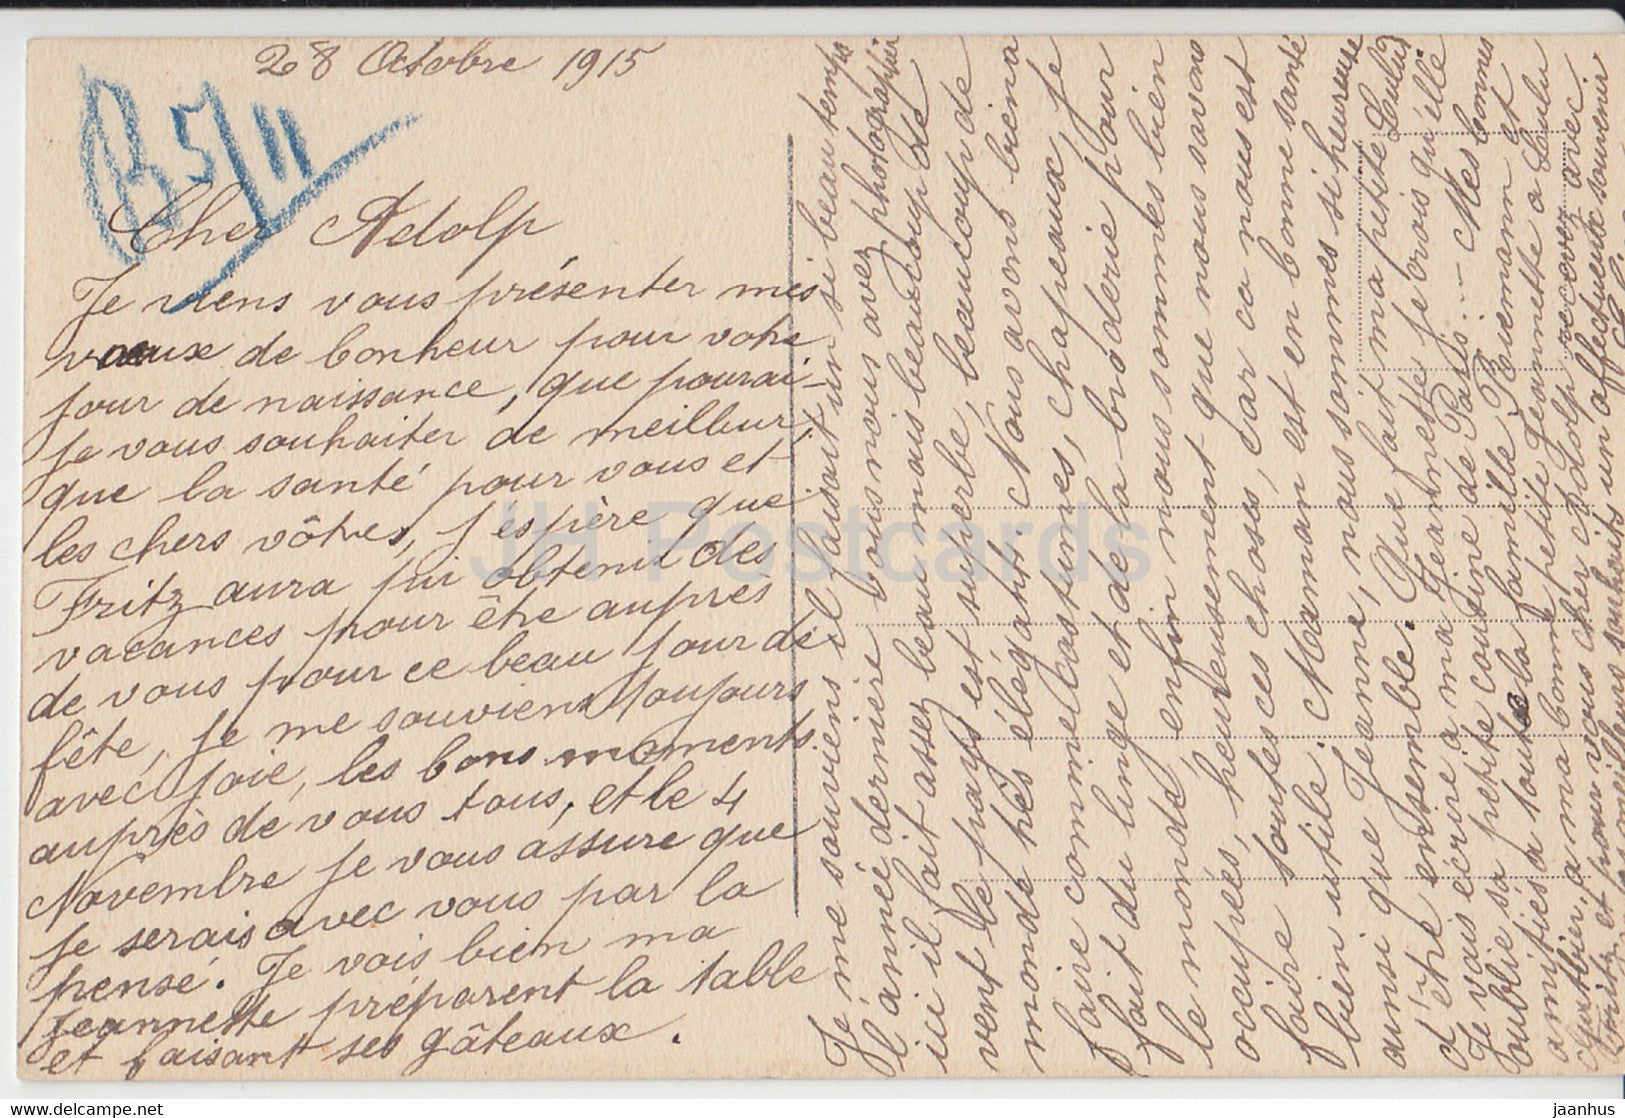 28 Octobre 1915
R 5/11
Cher Adolp
Je viens vous présenter mes
vœux de bonheur pour votre
jour de naissance, que pourai-
je vous souhaiter de meilleur,
que la santé pour vous et
les chers vôtres, j'espère que
Fritz aura pu obtenir des
vacances pour être auprès
de vous pour ce beau jour de
fête, je me souviens toujours
avec joie, les bons moments
auprès de vous tous, et le 4
Novembre je vous assure que
je serais avec vous par la
pensé. Je vois bien ma
Jeannette préparent la table
et faisant ses gâteaux.
Je me souviens il faisait un si beau temps
l'année dernière vous nous avez photographier
ici il fait assez beau mais beaucoup de
vent le pays est superbe, beaucoup de
monde très élégant. Nous avons bien a
faire comme costumes, chapeaux, je
fait du linge et de la broderie pour
le monde, enfin nous sommes bien
occupées, heureusement que nous savons
faire toutes ces choses, car ca nous est
bien utile. Maman est en bonne santé
ainsi que Jeanne, nous sommes si heureuse
d'être ensemble. Que fait ma petite Loulou
Je vais écrire a ma Jeannette je crois qu'elle
oublie sa petite cousine de Paris... Mes bonnes
amitiés a toute la famille et
a ma bonne petite Jeannette a Loulou
et pour vous cher Adolp recevez avec
mes meilleurs souhaits un affectueux souvenir
JH Postcards
jaanhus www.delcampe.net